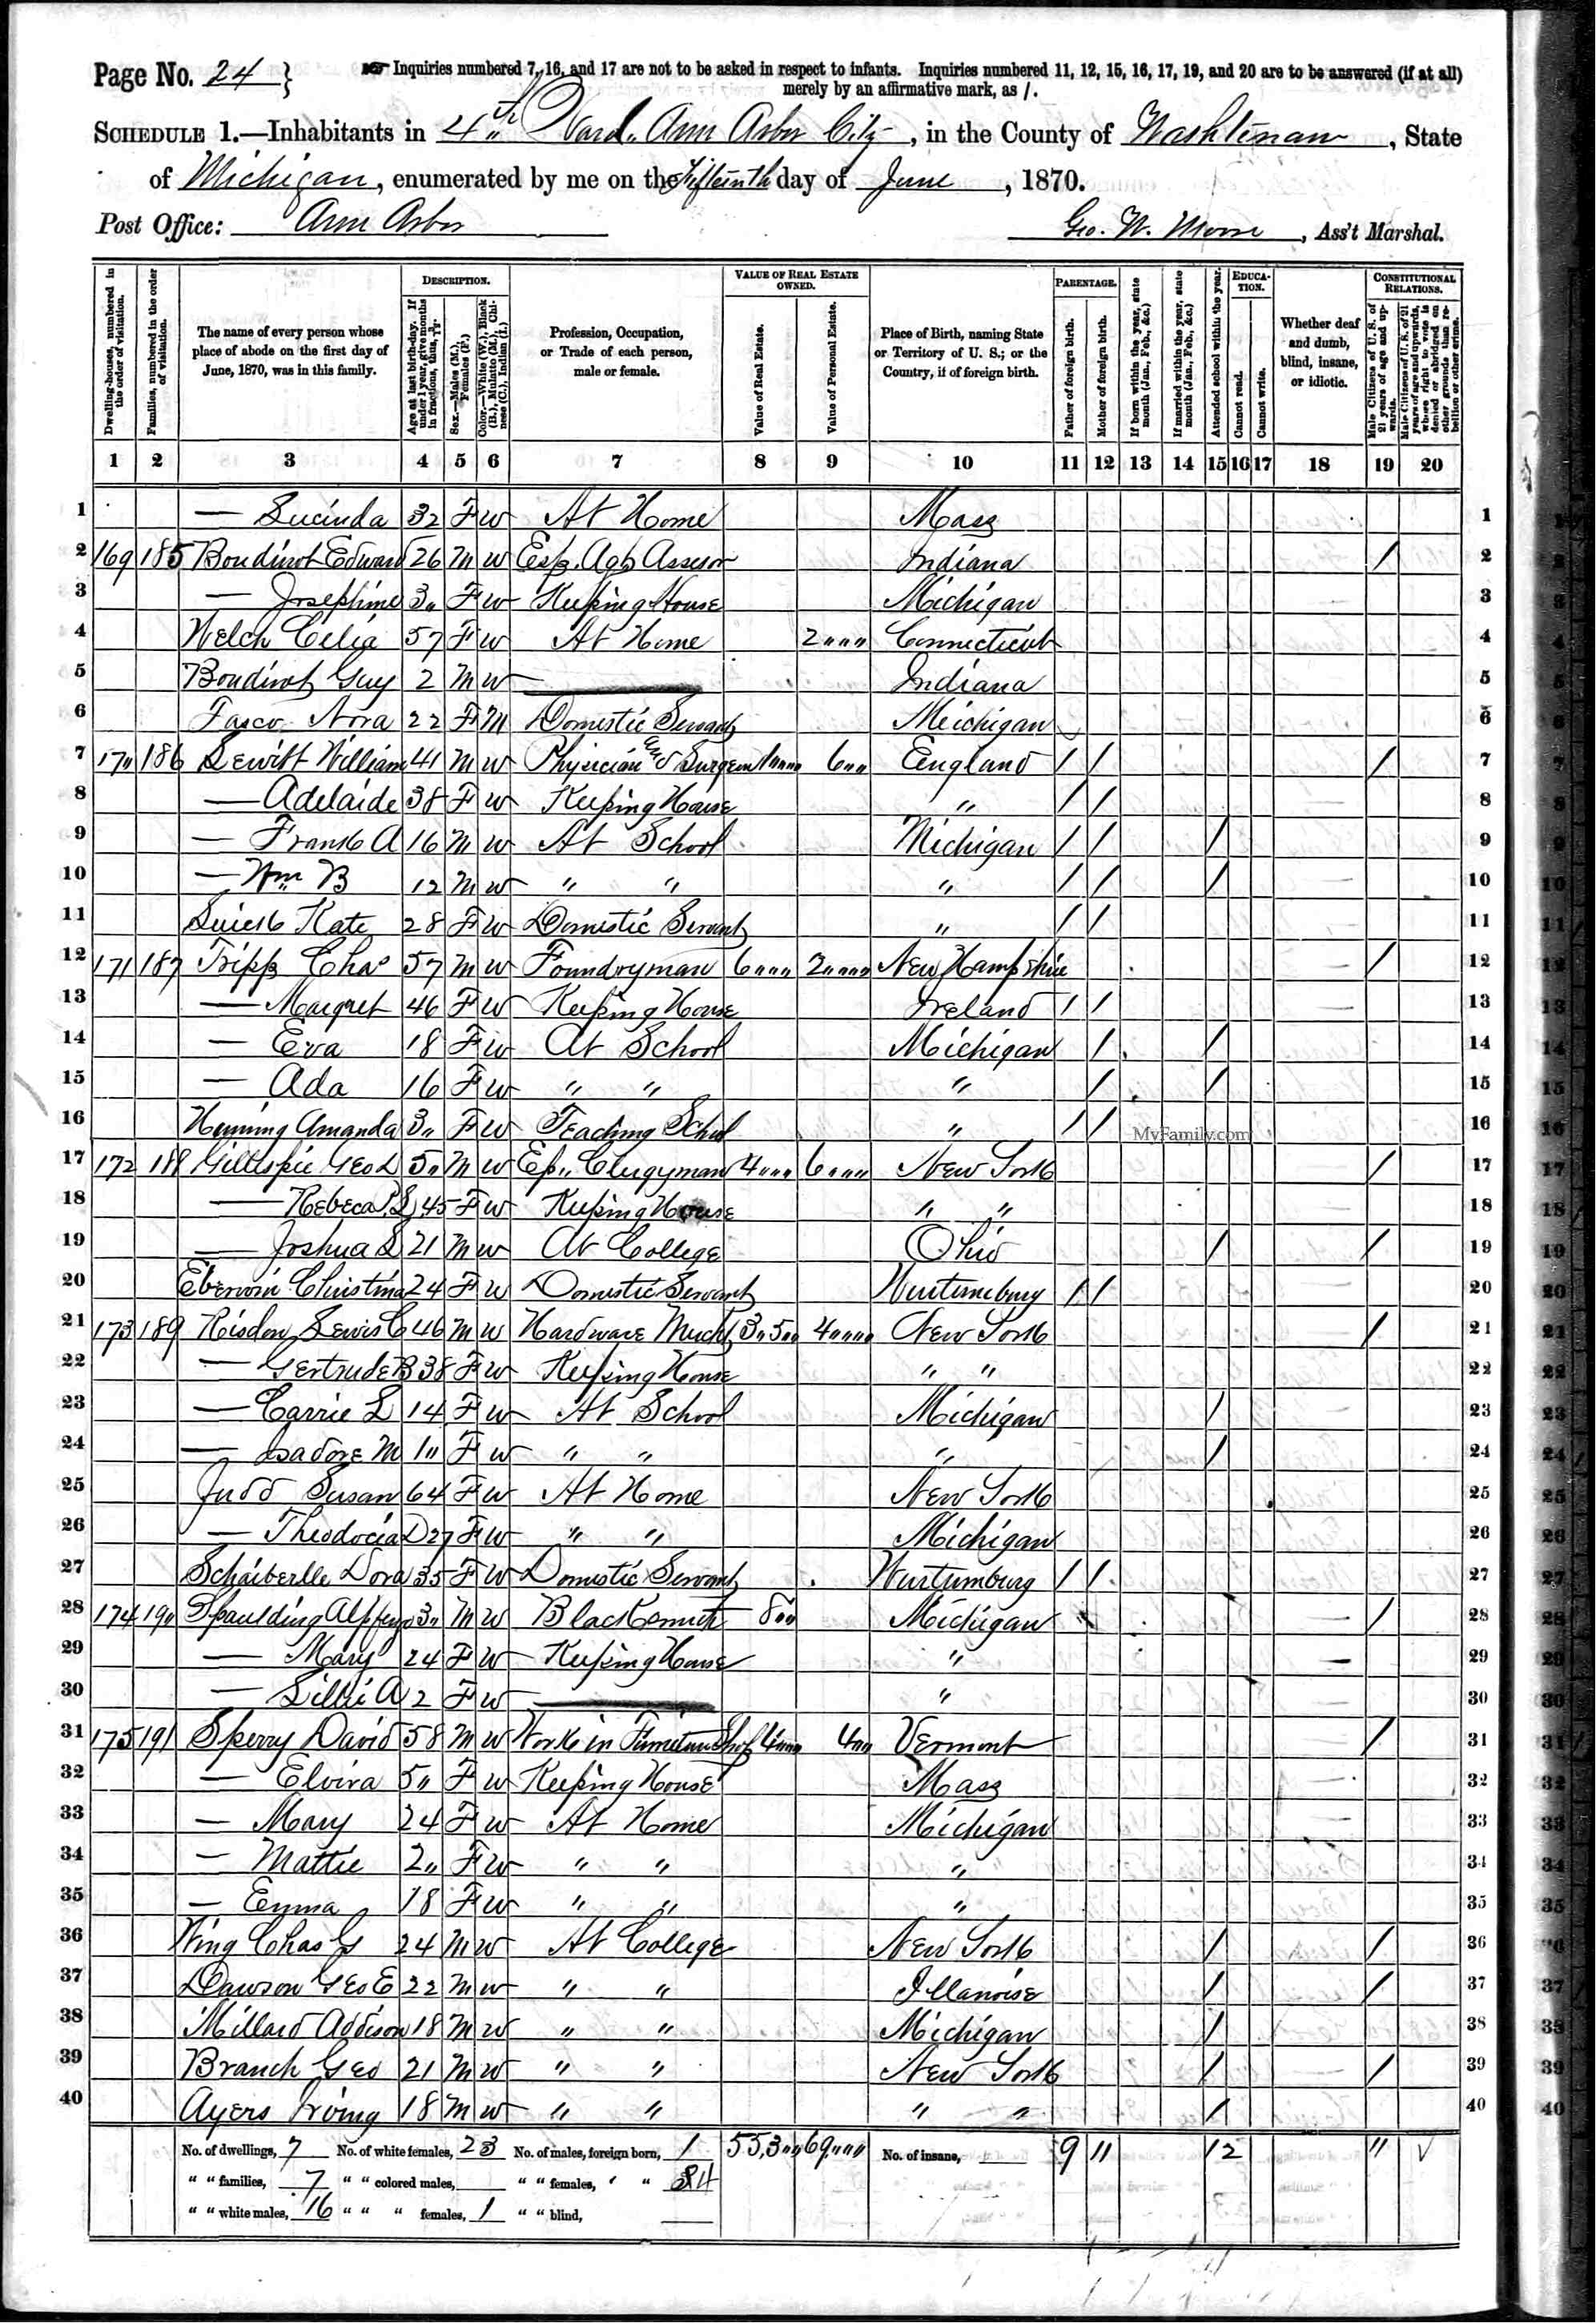 Page No. 24 }
Inquiries numbered 7, 16, and 17 are not to be asked in respect to infants. Inquiries numbered 11, 12, 15, 16, 17, 19, and 20 are to be answered (if at all)
merely by an affirmative mark, as /.
SCHEDULE 1.—Inhabitants in 4th Ward, Ann Arbor City, in the County of Washtenaw, State
of Michigan, enumerated by me on the Fifteenth day of June, 1870.
Post Office: Ann Arbor
Geo. W. Moore, Ass't Marshal.
Dwelling-houses, numbered in the order of visitation.
Families, numbered in the order of visitation.
The name of every person whose place of abode on the first day of June, 1870, was in this family.
DESCRIPTION.
Age at last birth-day. If under 1 year, give months in fractions, thus,
Sex.—Males (M.), Females (F.)
Color.—White (W.), Black (B.), Mulatto (M.), Chinese (C.), Indian (I.)
Profession, Occupation, or Trade of each person, male or female.
VALUE OF REAL ESTATE OWNED.
Value of Real Estate.
Value of Personal Estate.
Place of Birth, naming State or Territory of U. S.; or the Country, if of foreign birth.
PARENTAGE.
Father of foreign birth.
Mother of foreign birth.
If born within the year, state month (Jan., Feb., &c.)
If married within the year, state month (Jan., Feb., &c.)
Attended school within the year.
EDUCATION.
Cannot read.
Cannot write.
Whether deaf and dumb, blind, insane, or idiotic.
CONSTITUTIONAL RELATIONS.
Male Citizens of U. S. of 21 years of age and upwards.
Male Citizens of U. S. of 21 years of age and upwards, whose right to vote is denied or abridged on other grounds than rebellion or other crime.
1 2 3 4 5 6 7 8 9 10 11 12 13 14 15 16 17 18 19 20
1 — Lucinda 32 F W At Home Mass 1
2 169 185 Boudinot Edward 26 M W Assessor Indiana / 2
3 — Josephine 3" F W Keeping House Michigan 3
4 Welch Celia 57 F W At Home 2""" Connecticut 4
5 Boudinot Guy 2 M W Indiana 5
6 Nora 22 F M Domestic Servant Meichigan 6
7 17" 186 Lewitt William 41 M W Physician and Surgeon 6"" England / / / 7
8 — Adelaide 38 F W Keeping House " / / 8
9 — Frank A 16 M W At School Michigan / / / 9
10 — Wm B 12 M W " " " / / / 10
11 Kate 28 F W Domestic Servant " / / 11
12 171 187 Tripp Chas 57 M W Foundryman 6""" 2"""" New Hampshire / 12
13 — Margret 46 F W Keeping House Ireland / / 13
14 — Eva 18 F W At School Michigan / / 14
15 — Ada 16 F W " " " / / 15
16 Amanda 3" F W Teaching School " / / 16
MyFamily.com
17 172 188 Gillespie Geo D 5" M W Ep" Clergyman 4""" 6"""" New York / 17
18 — Rebeca 45 F W Keeping House " " 18
19 — Joshua S 21 M W At College Ohio / / 19
20 Christina 24 F W Domestic Servant Wurtumburg / / 20
21 173 189 Risdon Lewis C 46 M W Hardware Mercht 3"5"" 4"""" New York / 21
22 — Gertrude B 38 F W Keeping House " " 22
23 — Carrie L 14 F W At School Michigan / 23
24 — Isadore M 1" F W " " " / 24
25 Judd Susan 64 F W At Home New York 25
26 — Theodocia D 27 F W " " Michigan 26
27 Schaiberlle Dora 35 F W Domestic Servant Wurtumburg / / 27
28 174 19" Spaulding 3" M W Blacksmith 8"" Michigan / 28
29 — Mary 24 F W Keeping House " 29
30 — Lillie A 2 F W " 30
31 175 191 Sperry David 58 M W Works in Furniture Shop 4""" 4"" Vermont / 31
32 — Elvira 5" F W Keeping House Mass 32
33 — Mary 24 F W At Home Michigan 33
34 — Mattie 2" F W " " " 34
35 — Emma 18 F W " " " 35
36 Wing Chas G 24 M W At College New York / / 36
37 Dawson Geo E 22 M W " " Illanoise / / 37
38 Millard Addison 18 M W " " Michigan / 38
39 Branch Geo 21 M W " " New York / / 39
40 Ayers Irving 18 M W " " " " / 40
No. of dwellings, 7 No. of white females, 23 No. of males, foreign born, 1 55,3"" 69,""" No. of insane, 9 11 12 11
" " families, 7 " " colored males, " " females, " " 4
" " white males, 16 " " " females, 1 " " blind,